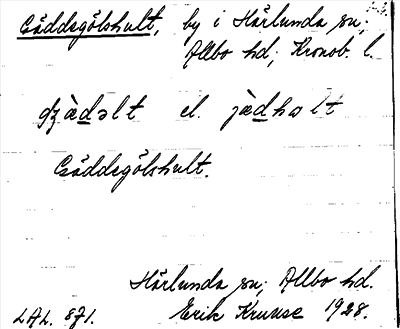 Gäddegölshult, by i Härlunda sn;
Allbo hd; Kronob. l.
dʒàdəlt el. jàdhəlt
Gäddegölshult.
Härlunda sn; Allbo hd.
LAL. 871. Erik Kruuse 1928.